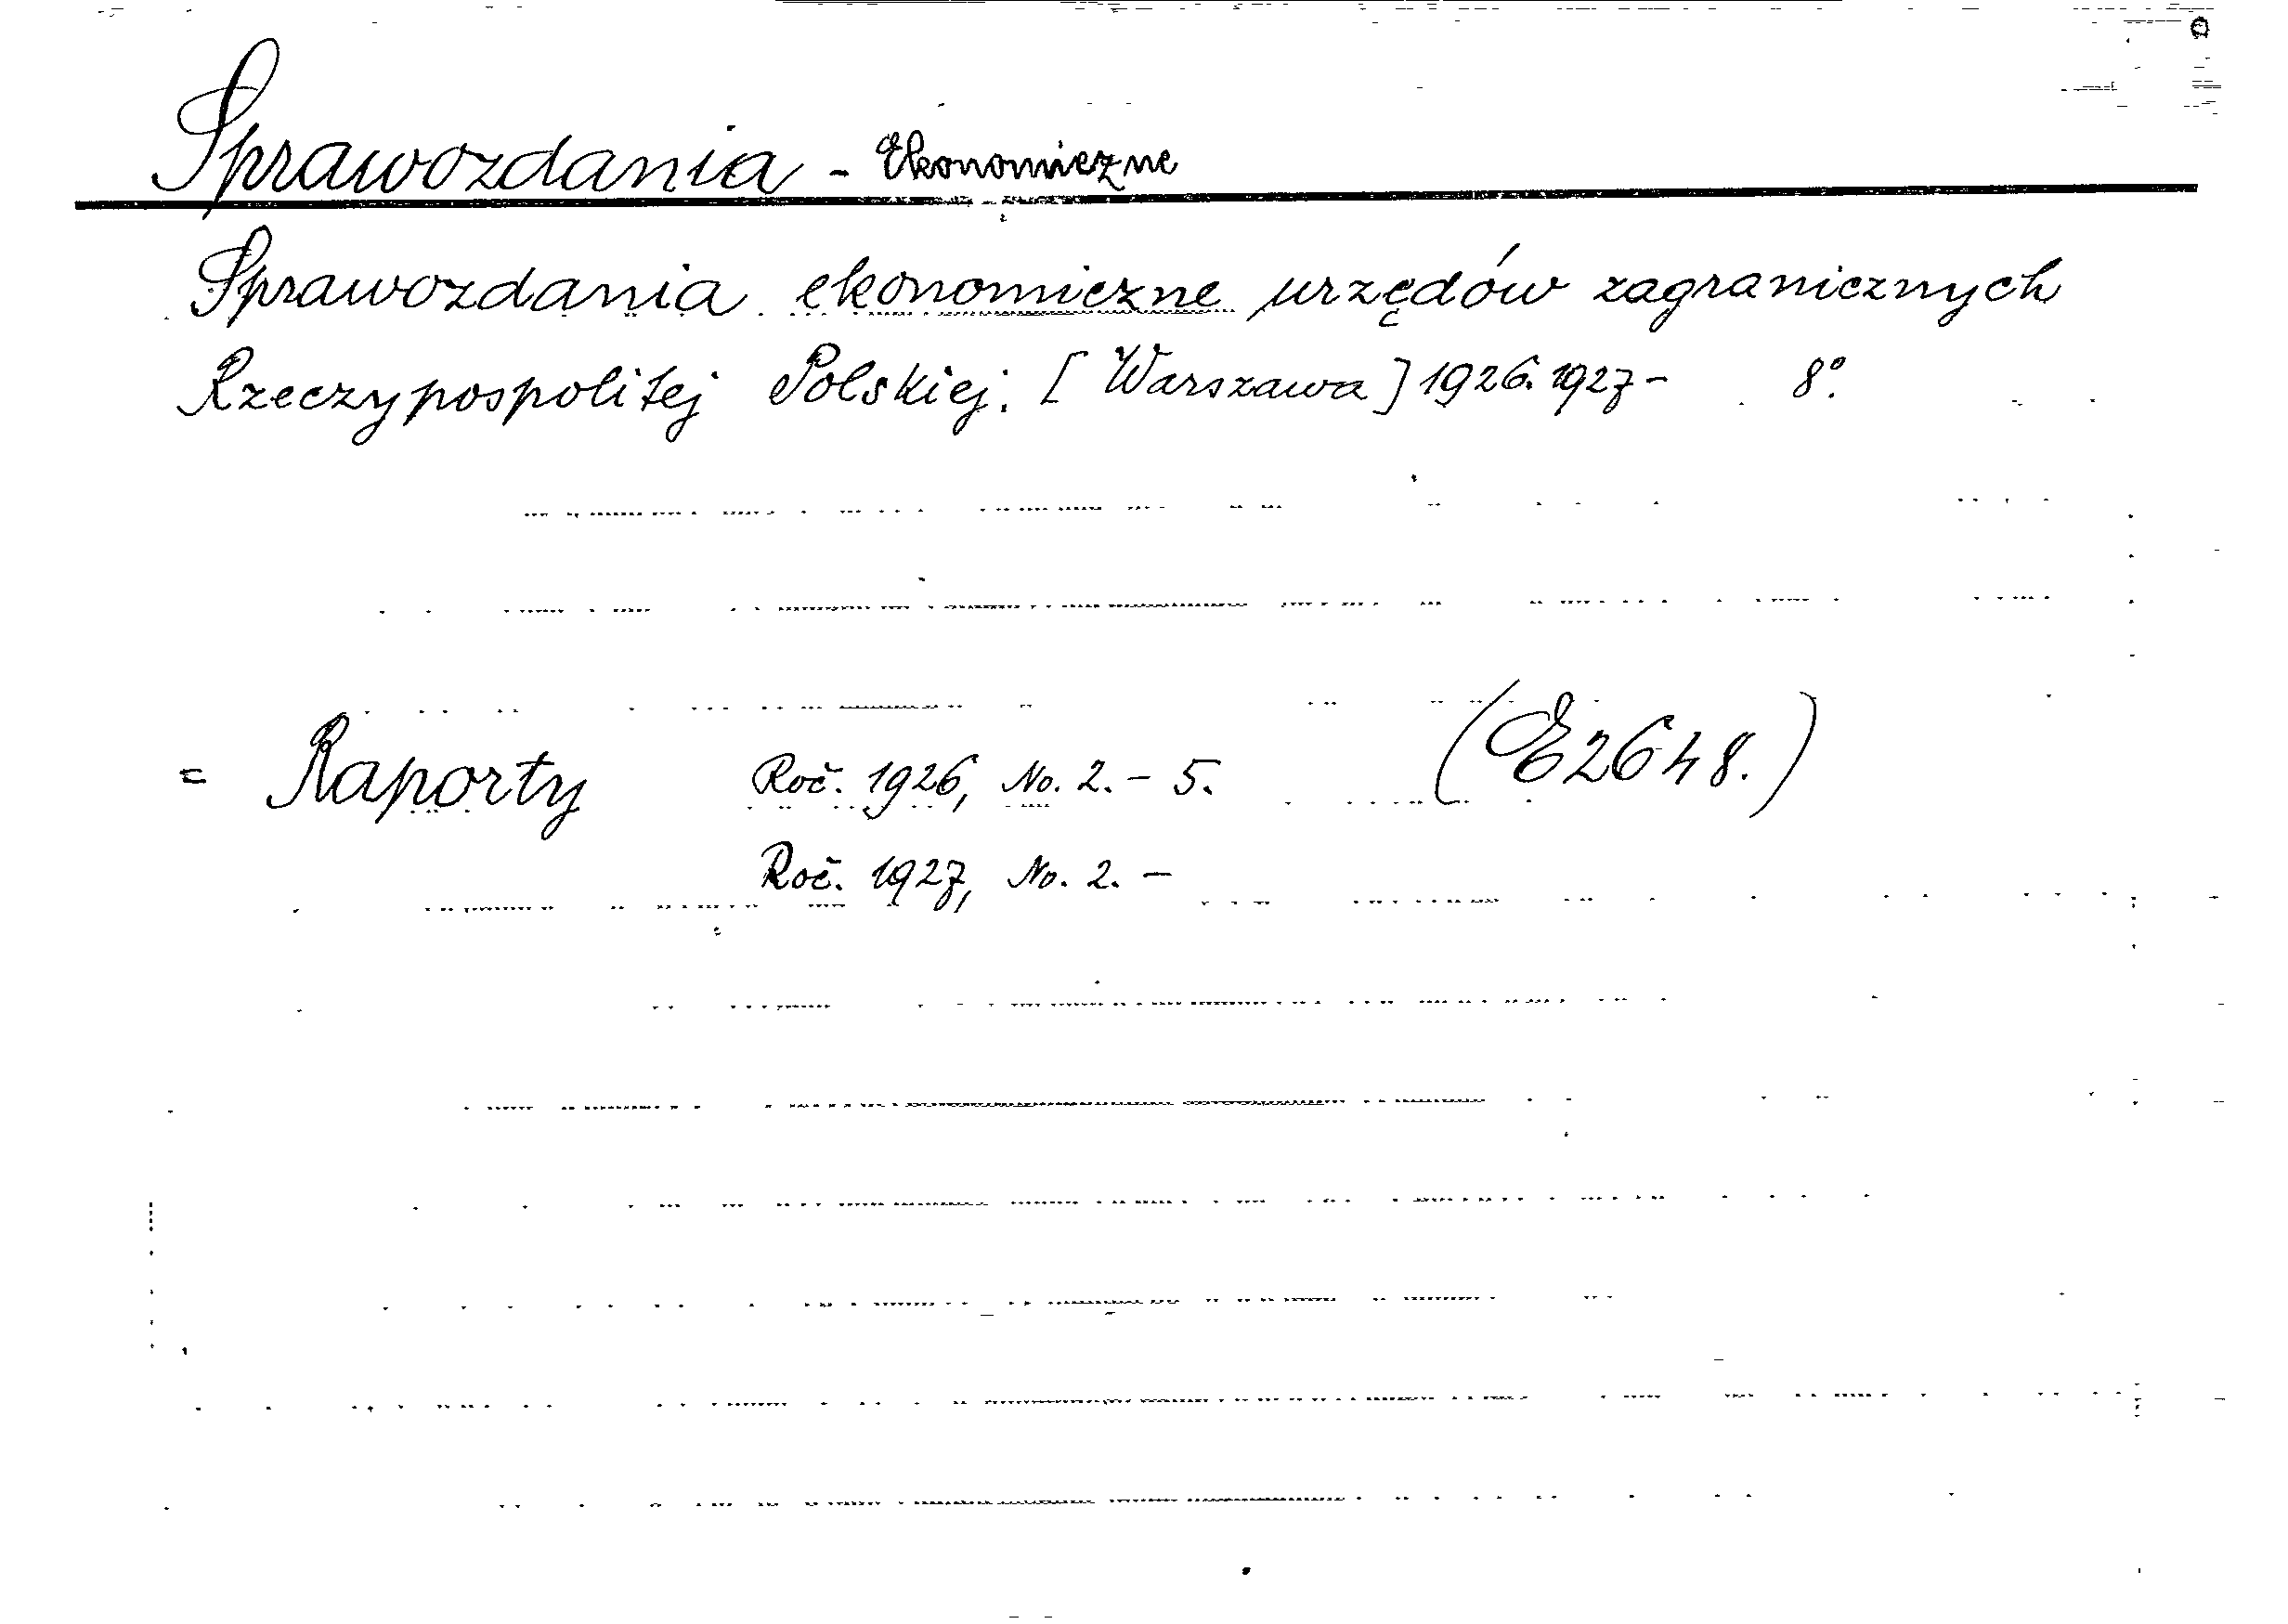 Sprawozdania - Ekonomiczne
Sprawozdania ekonomiczne urzędów zagranicznych
Rzeczypospolitej Polskiej. [Warszawa] 1926. 1927- 8°.
= Raporty Roč. 1926, No. 2. - 5. (E2648.)
Roč. 1927, No. 2. -